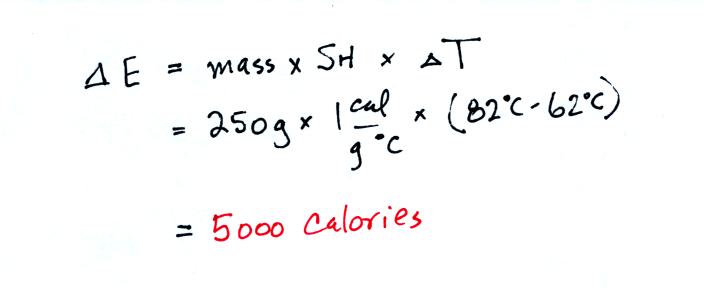 ΔE = mass x SH x ΔT
= 250g x 1 cal/g°C x (82°C-62°C)
= 5000 Calories